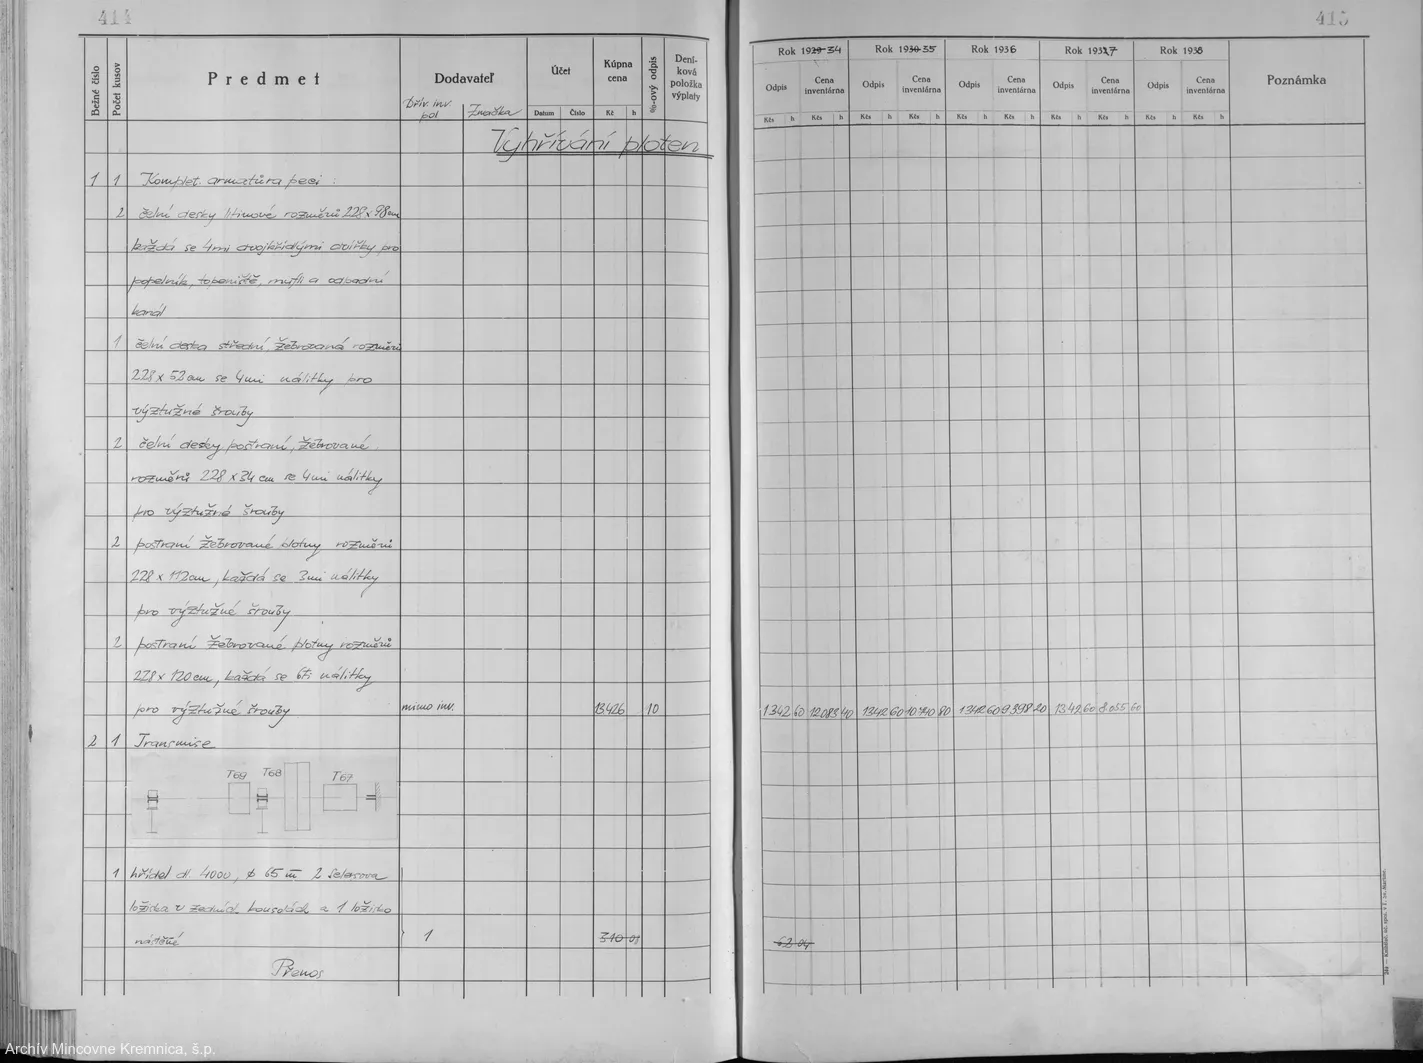 414
415
Bežné číslo
Počet kusov
Predmet
Dodavateľ
Dřív. inv. pol
Značka
Účet
Datum
Číslo
Kúpna cena
Kč h
%-ový odpis
Deníková položka výplaty
Rok 1929 34
Rok 1930 35
Rok 1936
Rok 1937
Rok 1938
Poznámka
Odpis Cena inventárna Odpis Cena inventárna Odpis Cena inventárna Odpis Cena inventárna Odpis Cena inventárna
Kčs h Kčs h Kčs h Kčs h Kčs h Kčs h Kčs h Kčs h Kčs h Kčs h
Vyhřívání ploten
1 1 Komplet. armatůra peci :
2 čelní desky litinové rozměrů 228 x 98 cm
každá se 4mi dvojkřídlými dvířky pro
popelník, topeniště, mufli a odpadní
kanál
1 čelní deska střední žebrovaná rozměrů
228 x 52 cm se 4mi nálitky pro
výztužné šrouby
2 čelní desky postraní, žebrované
rozměrů 228 x 34 cm se 4mi nálitky
pro výztužné šrouby
2 postraní žebrované plotny rozměrů
228 x 112 cm, každá se 3mi nálitky
pro výztužné šrouby
2 postraní žebrované plotny rozměrů
228 x 120 cm, každá se 6ti nálitky
pro výztužné šrouby mimo inv. 13426 10 1342 60 12.083 40 1342 60 10740 80 1342 60 9398 20 1342 60 8.055 60
2 1 Transmise
T69 T68 T67
1 hřídel dl. 4000, ø 65 m/m 2 Selersova
ložiska v zedních konsolách a 1 ložisko
nástěné 1 310 01 62 04
Přenos
Archív Mincovne Kremnica, š.p.